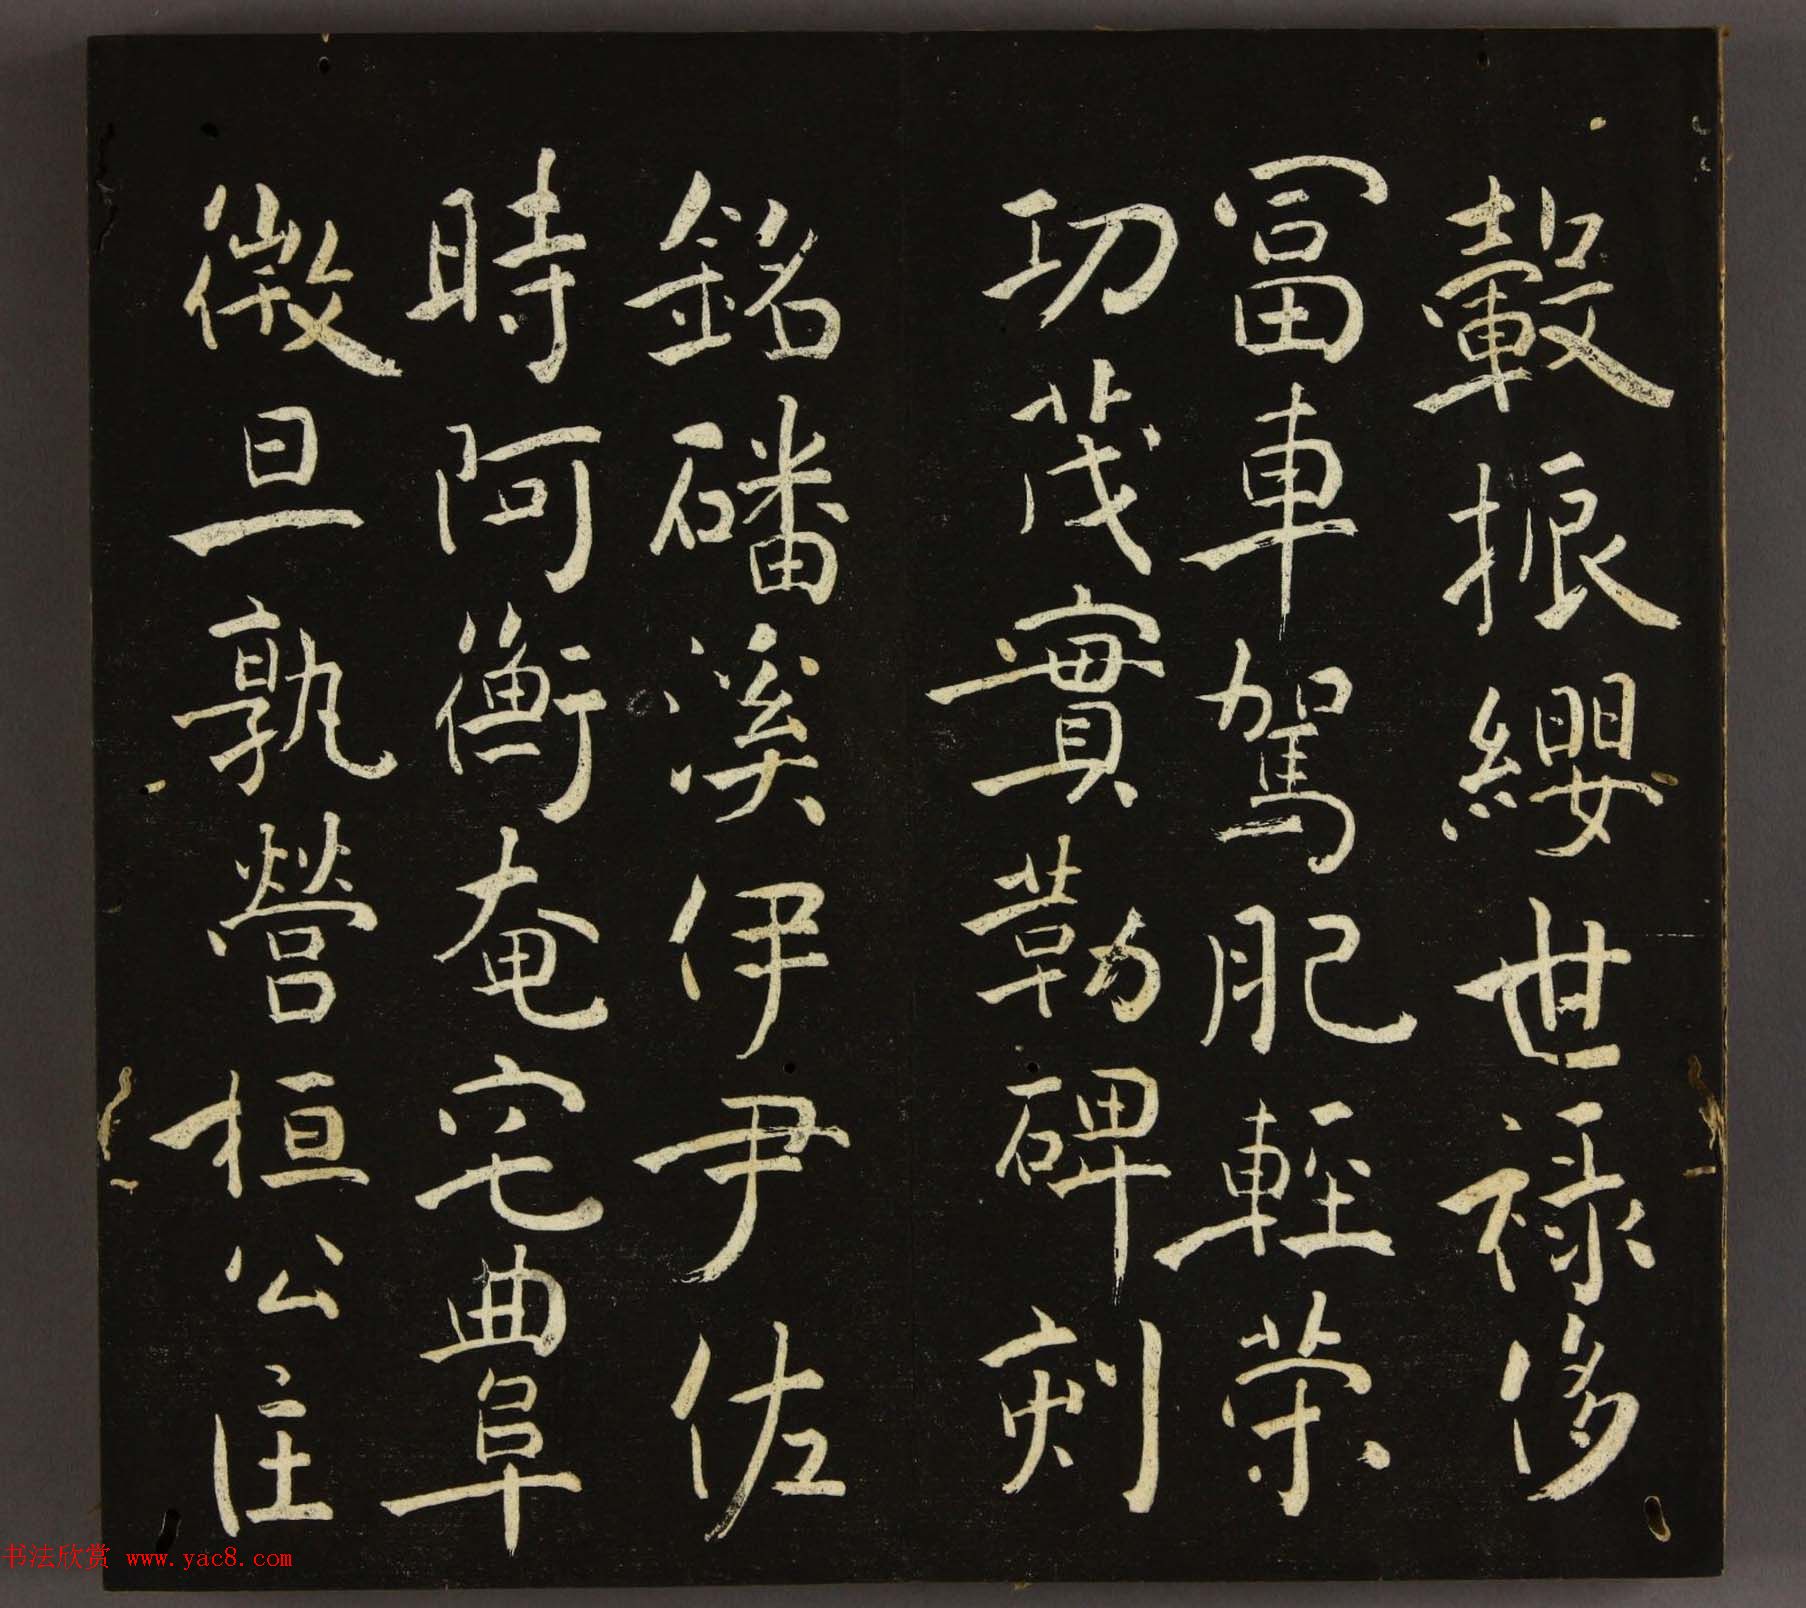 轂振纓世祿侈
冨車駕肥輕榮
功茂實勒碑刻
銘磻溪伊尹佐
時阿衡奄宅曲阜
微旦孰營桓公匡
书法欣赏 www.yac8.com